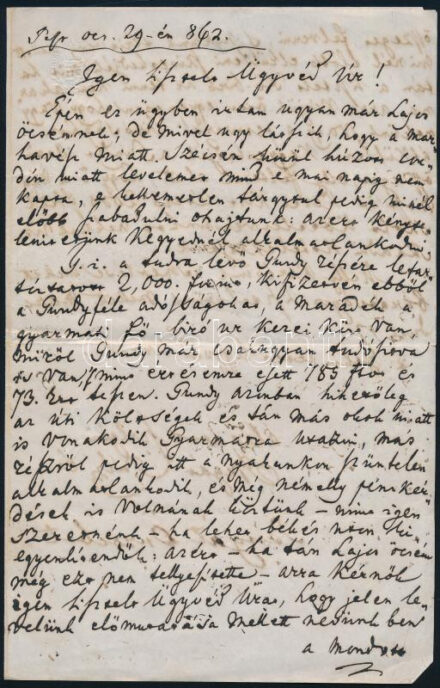 Pest Dec. 29-én 862.
Igen tisztelt Ügyvéd Úr!
Épen ez ügyben irtam ugyan már Lajos
öcsémnek; de mivel ugy látszik, hogy a mar
havész miatt Szécsén körül húzott cor
don miatt levelemet mind e mai napig nem
kapta, e kellemetlen tárgytul pedig minél
előbb szabadulni ohajtunk: azért kényte
lenittetünk Kegyednél alkalmatlankodni.
T. i. a tudva levő Gundy részére letar
tóztatott 2,000. frtnyi, kifizetvén ebből
a Gundyféle adósságokat, a maradék a
gyarmati Fő biró ur kezei közt van,
miről Gundy már csakugyan tudósitva
is van, mint részére esett 785 ftos és
73. tesz. Gundy azonban hihetőleg
az úti költségek és tán más okok miatt
is vonakodik Gyarmatra utazni, más
részről pedig itt a nyakunkon szüntelen
alkalmatlankodik, és még némelly pénzkér
dések is volnának köztünk – mint igen
szeretnénk – ha lehet békés uton ki
egyenlitendők: azért – ha tán Lajos öcsém
még ezt nem tellyesitette – arra kérnők
igen tisztelt Ügyvéd Urat, hogy jelen le
velünk előmutatása mellett nevünkben
a mondott